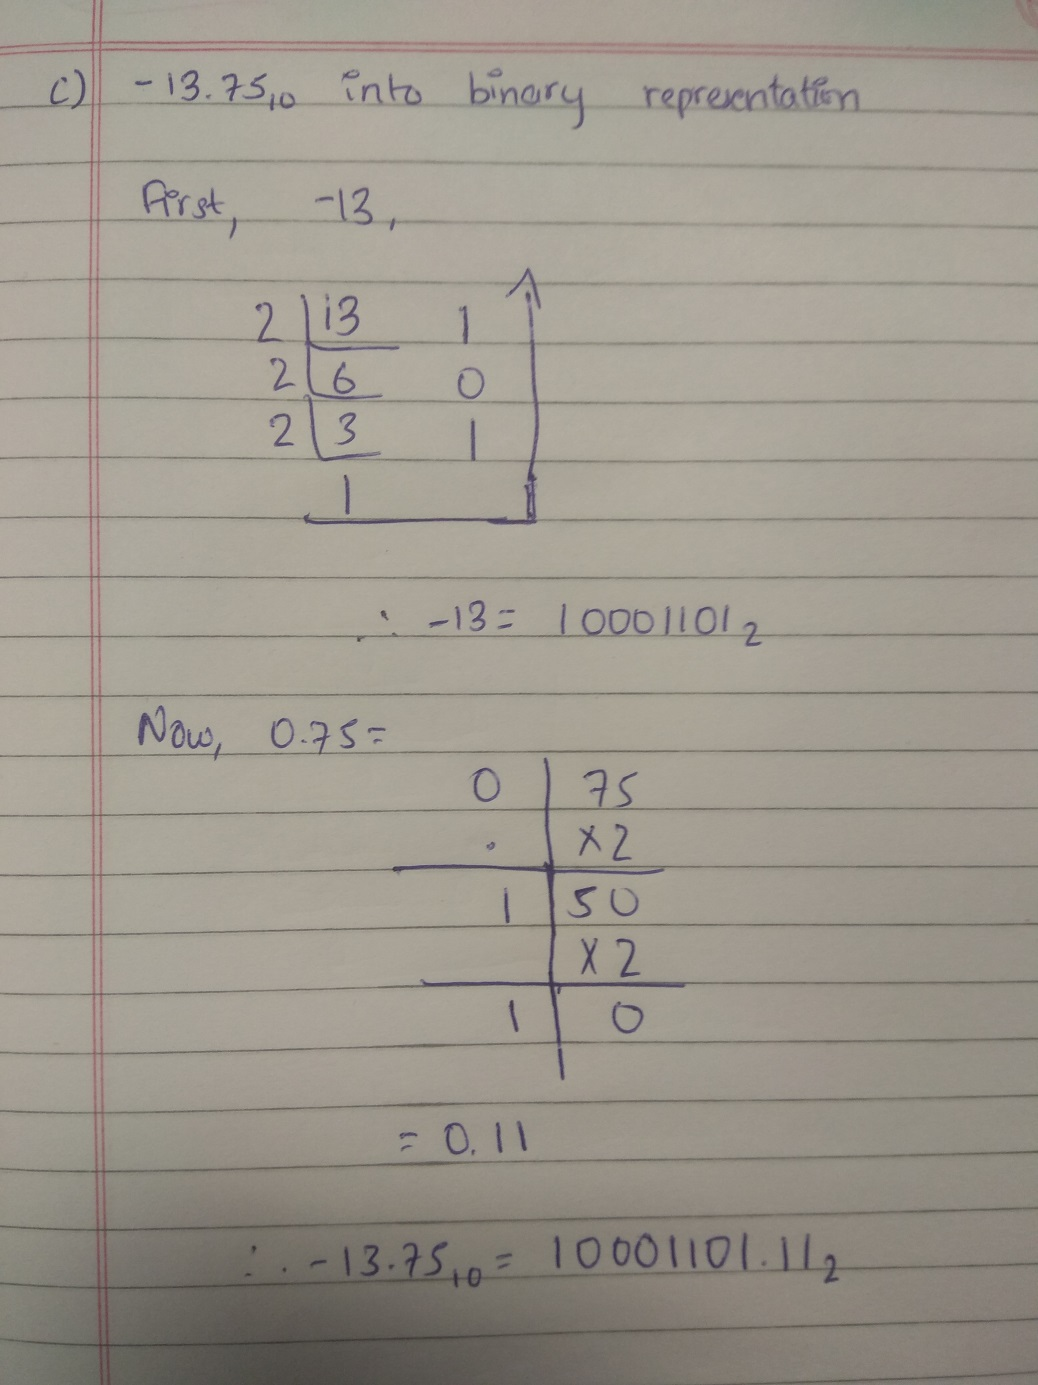 c) -13.75₁₀ into binary representation
First, -13,
2 | 13 1
2 | 6 0
2 | 3 1
1
∴ -13 = 10001101₂
Now, 0.75 =
0 | 75
. | ×2
1 | 50
×2
1 | 0
= 0.11
∴ -13.75₁₀ = 10001101.11₂